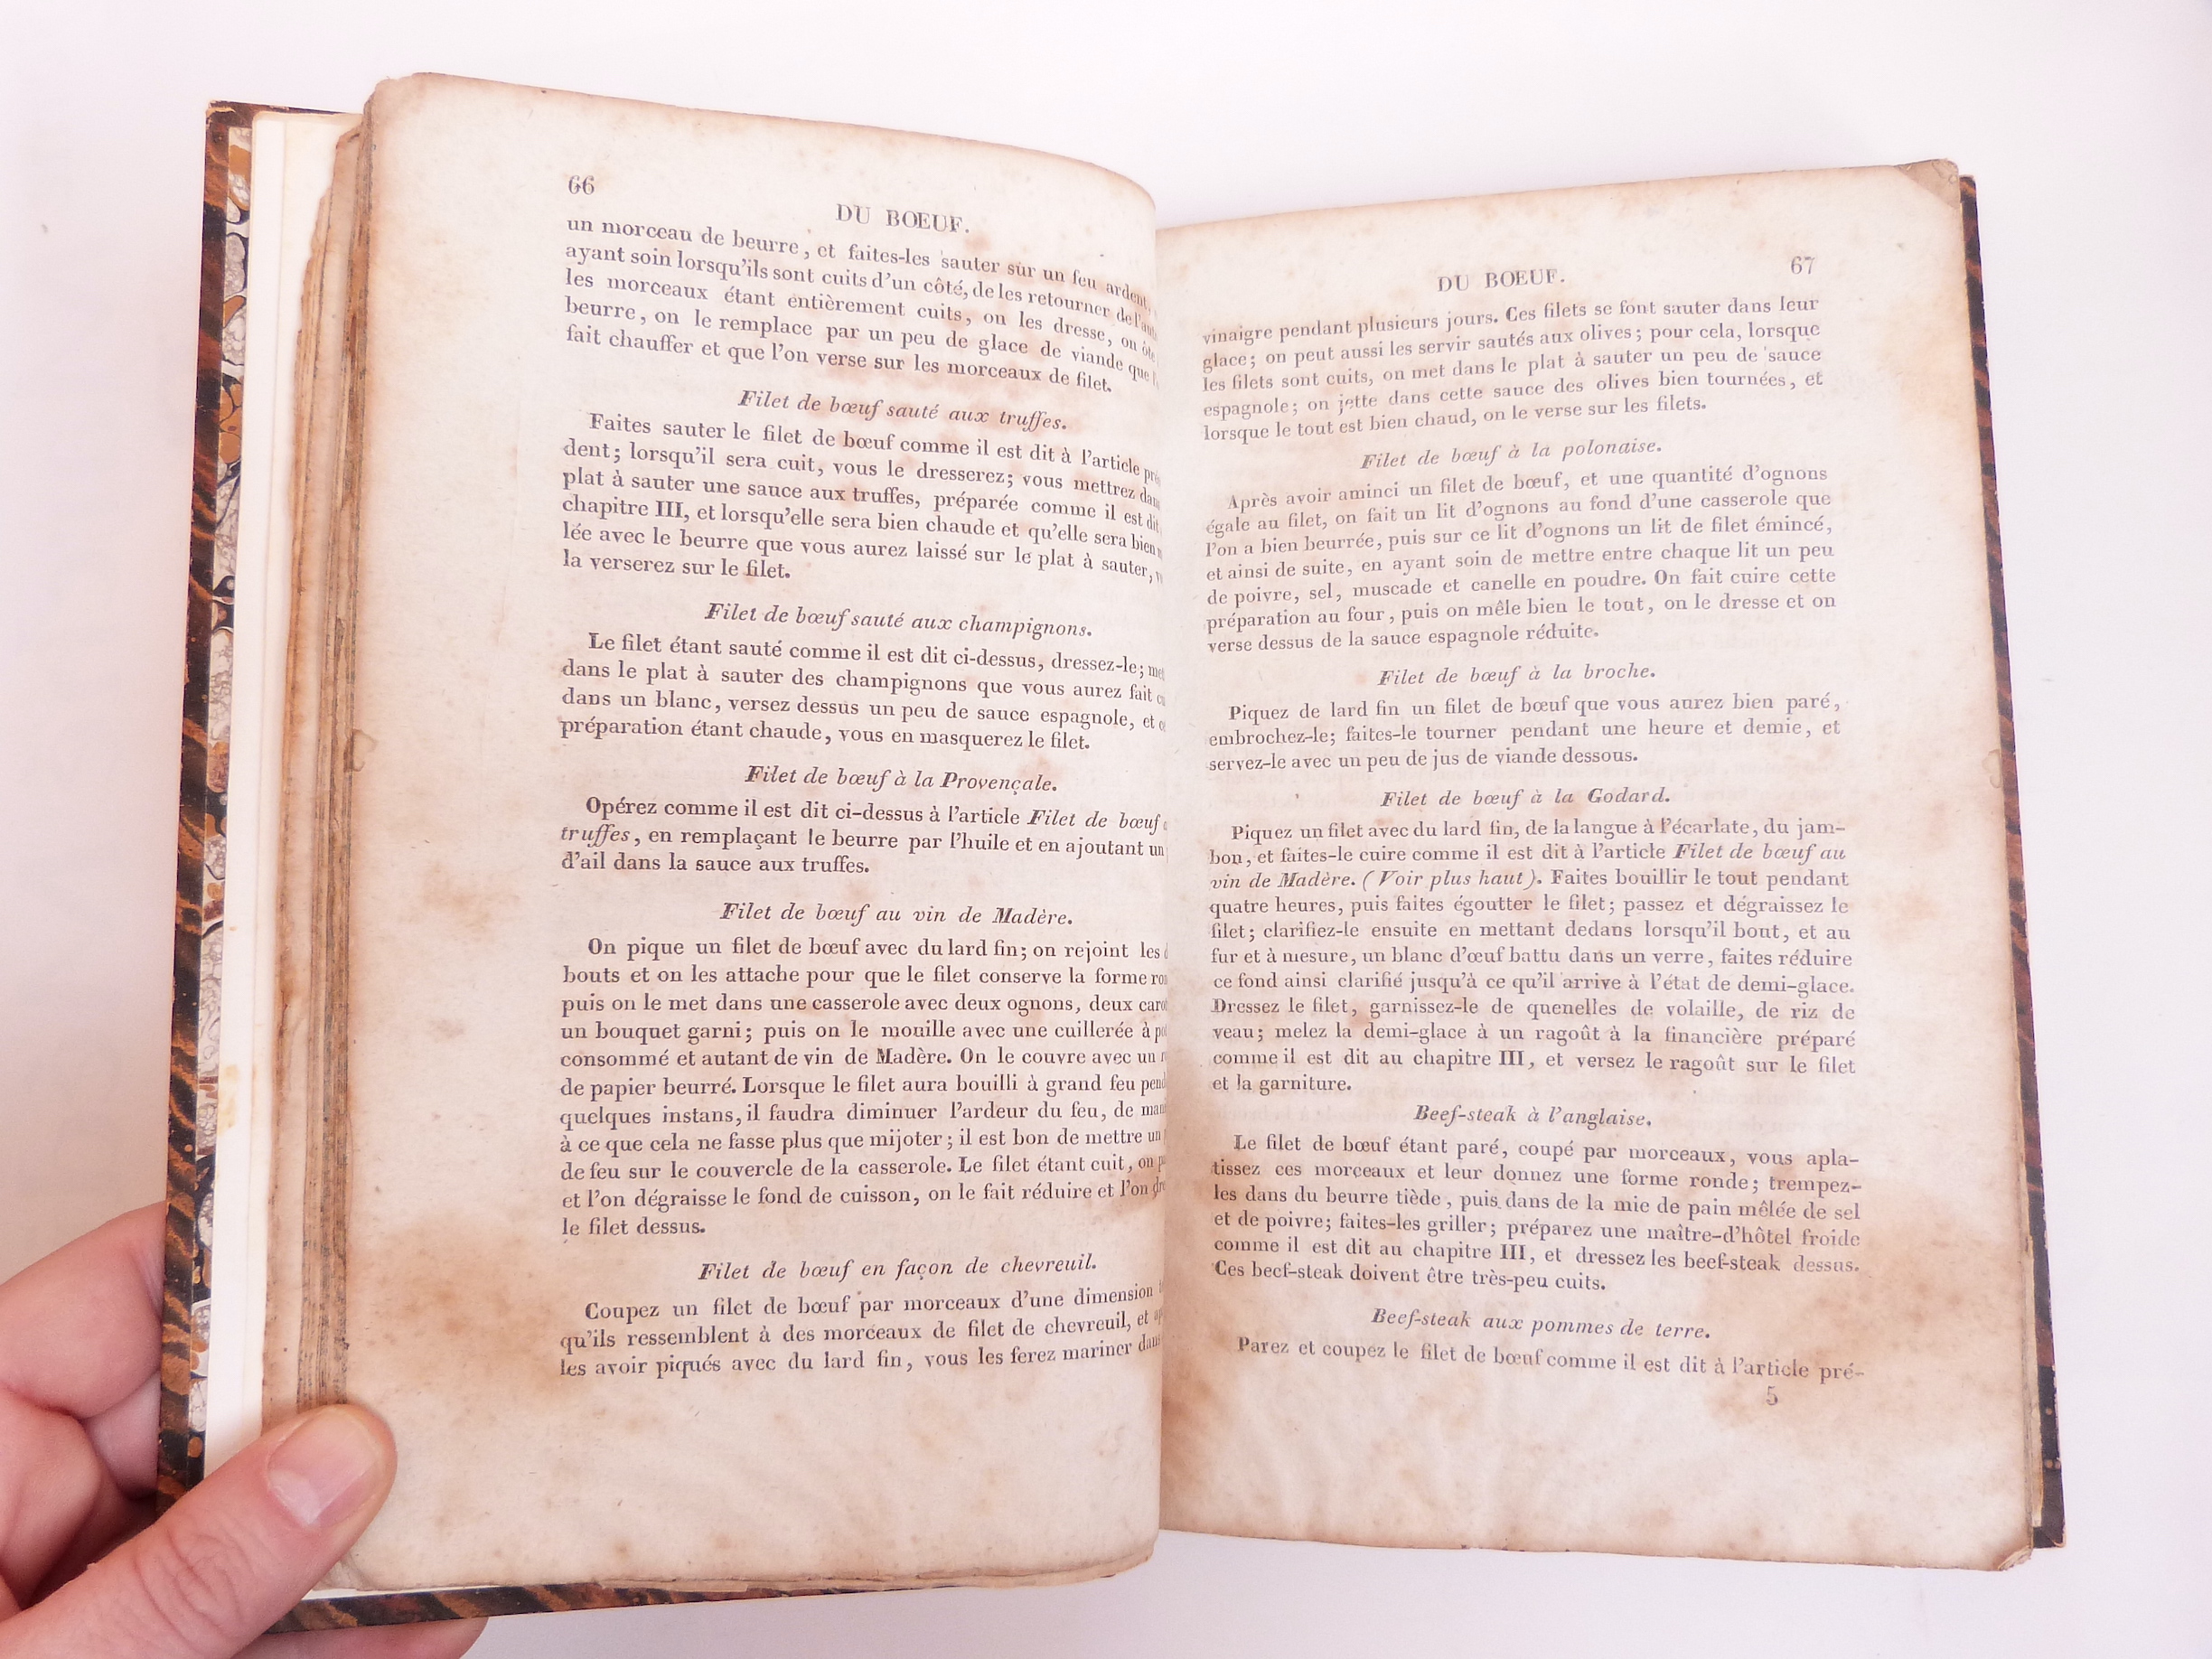 66
DU BŒUF.
un morceau de beurre, et faites-les sauter sur un feu ardent,
ayant soin lorsqu'ils sont cuits d'un côté, de les retourner de
les morceaux étant entièrement cuits, on les dresse, on ôte
beurre, on le remplace par un peu de glace de viande que
fait chauffer et que l'on verse sur les morceaux de filet.
Filet de bœuf sauté aux truffes.
Faites sauter le filet de bœuf comme il est dit à l'article
dent; lorsqu'il sera cuit, vous le dresserez; vous mettrez
plat à sauter une sauce aux truffes, préparée comme il est dit
chapitre III, et lorsqu'elle sera bien chaude et qu'elle sera bien
lée avec le beurre que vous aurez laissé sur le plat à sauter,
la verserez sur le filet.
Filet de bœuf sauté aux champignons.
Le filet étant sauté comme il est dit ci-dessus, dressez-le;
dans le plat à sauter des champignons que vous aurez fait
dans un blanc, versez dessus un peu de sauce espagnole, et
préparation étant chaude, vous en masquerez le filet.
Filet de bœuf à la Provençale.
Opérez comme il est dit ci-dessus à l'article Filet de bœuf
truffes, en remplaçant le beurre par l'huile et en ajoutant un
d'ail dans la sauce aux truffes.
Filet de bœuf au vin de Madère.
On pique un filet de bœuf avec du lard fin; on rejoint les
bouts et on les attache pour que le filet conserve la forme
puis on le met dans une casserole avec deux ognons, deux
un bouquet garni; puis on le mouille avec une cuillerée à
consommé et autant de vin de Madère. On le couvre avec un
de papier beurré. Lorsque le filet aura bouilli à grand feu
quelques instans, il faudra diminuer l'ardeur du feu, de
à ce que cela ne fasse plus que mijoter; il est bon de mettre un
de feu sur le couvercle de la casserole. Le filet étant cuit, on
et l'on dégraisse le fond de cuisson, on le fait réduire et l'on
le filet dessus.
Filet de bœuf en façon de chevreuil.
Coupez un filet de bœuf par morceaux d'une dimension
qu'ils ressemblent à des morceaux de filet de chevreuil, et
les avoir piqués avec du lard fin, vous les ferez mariner dans
DU BŒUF.
67
vinaigre pendant plusieurs jours. Ces filets se font sauter dans leur
glace; on peut aussi les servir sautés aux olives; pour cela, lorsque
les filets sont cuits, on met dans le plat à sauter un peu de sauce
espagnole; on jette dans cette sauce des olives bien tournées, et
lorsque le tout est bien chaud, on le verse sur les filets.
Filet de bœuf à la polonaise.
Après avoir aminci un filet de bœuf, et une quantité d'ognons
égale au filet, on fait un lit d'ognons au fond d'une casserole que
l'on a bien beurrée, puis sur ce lit d'ognons un lit de filet émincé,
et ainsi de suite, en ayant soin de mettre entre chaque lit un peu
de poivre, sel, muscade et canelle en poudre. On fait cuire cette
préparation au four, puis on mêle bien le tout, on le dresse et on
verse dessus de la sauce espagnole réduite.
Filet de bœuf à la broche.
Piquez de lard fin un filet de bœuf que vous aurez bien paré,
embrochez-le; faites-le tourner pendant une heure et demie, et
servez-le avec un peu de jus de viande dessous.
Filet de bœuf à la Godard.
Piquez un filet avec du lard fin, de la langue à l'écarlate, du jam-
bon, et faites-le cuire comme il est dit à l'article Filet de bœuf au
vin de Madère. (Voir plus haut). Faites bouillir le tout pendant
quatre heures, puis faites égoutter le filet; passez et dégraissez le
filet; clarifiez-le ensuite en mettant dedans lorsqu'il bout, et au
fur et à mesure, un blanc d'œuf battu dans un verre, faites réduire
ce fond ainsi clarifié jusqu'à ce qu'il arrive à l'état de demi-glace.
Dressez le filet, garnissez-le de quenelles de volaille, de riz de
veau; melez la demi-glace à un ragoût à la financière préparé
comme il est dit au chapitre III, et versez le ragoût sur le filet
et la garniture.
Beef-steak à l'anglaise.
Le filet de bœuf étant paré, coupé par morceaux, vous apla-
tissez ces morceaux et leur donnez une forme ronde; trempez-
les dans du beurre tiède, puis dans de la mie de pain mêlée de sel
et de poivre; faites-les griller; préparez une maître-d'hôtel froide
comme il est dit au chapitre III, et dressez les beef-steak dessus.
Ces beef-steak doivent être très-peu cuits.
Beef-steak aux pommes de terre.
Parez et coupez le filet de bœuf comme il est dit à l'article pré-
5